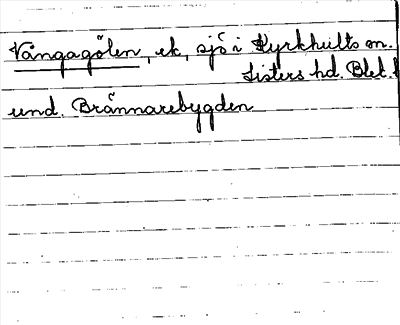 Vångagölen, ek, sjö i Kyrkhults sn.
Listers hd. Blek. l
und. Brännarebygden